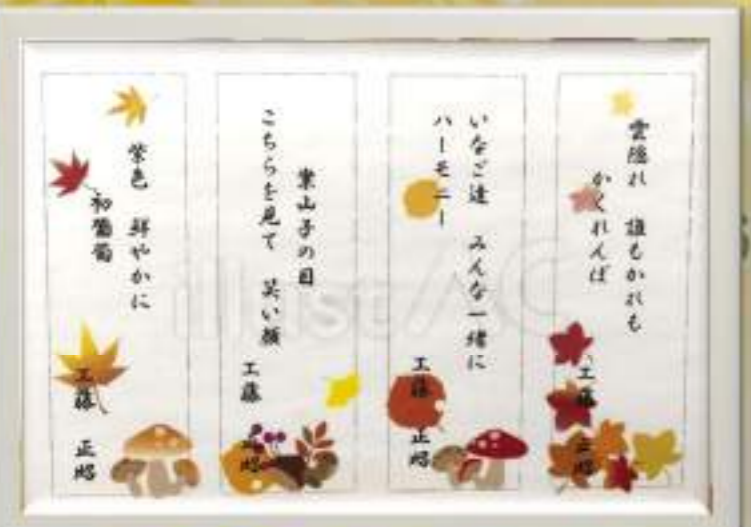 雲隠れ 誰もかれも
かくれんぼ
工藤 正昭
いなご達 みんな一緒に
ハーモニー
工藤 正昭
案山子の目
こちらを見て 笑い顔
工藤 正昭
紫色 鮮やかに
初葡萄
工藤 正昭
illustAC